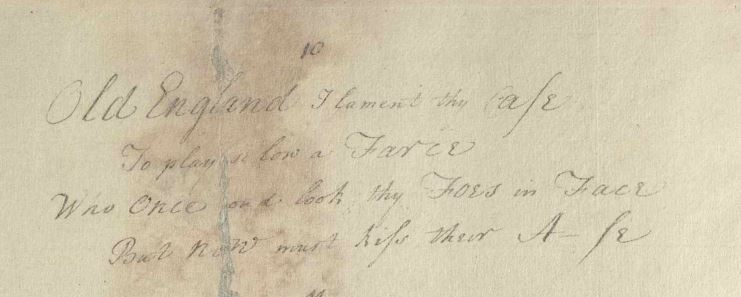 10
Old England I lament thy Caſe
To play so low a Farce
Who Once look thy Foes in Face
But now must kiſs their A—ſe